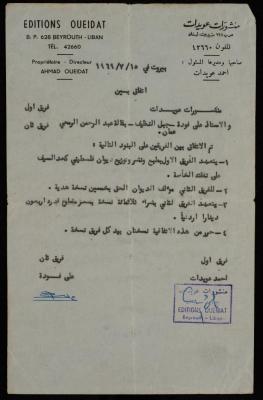 EDITIONS OUEIDAT
B. P. 628 BEYROUTH - LIBAN
TEL. 42660
Propriétaire - Directeur
AHMAD OUEIDAT
منشورات عويدات
ص.ب ٦٢٨ بيروت - لبنان
تلفون : ٤٢٦٦٠
صاحبها ومديرها المسئول :
احمد عويدات
بيروت في ١٩٦٩/٧/١٥
اتفاق بين
منشورات عويدات فريق اول
والاستاذ علي فودة - جبل النظيف - بقالة عبد الرحمن الرمحي
عمان . فريق ثان
تم الاتفاق بين الفريقين على البنود التالية :
١- يتعهد الفريق الاول بطبع ونشر وتوزيع ديوان فلسطيني كحد السيف
على نفقته الخاصة .
٢- للفريق الثاني مؤلف الديوان الحق بخمسين نسخة هدية .
٣- يتعهد الفريق الثاني بشراء ثلاثمائة نسخة بسعر مقطوع قدره اربعون
دينارا اردنيا .
٤- حرر من هذه الاتفاقية نسختان بيد كل فريق نسخة .
فريق اول فريق ثان
احمد عويدات علي فودة
منشورات عويدات
EDITIONS OUEIDAT
Beyrouth - Liban